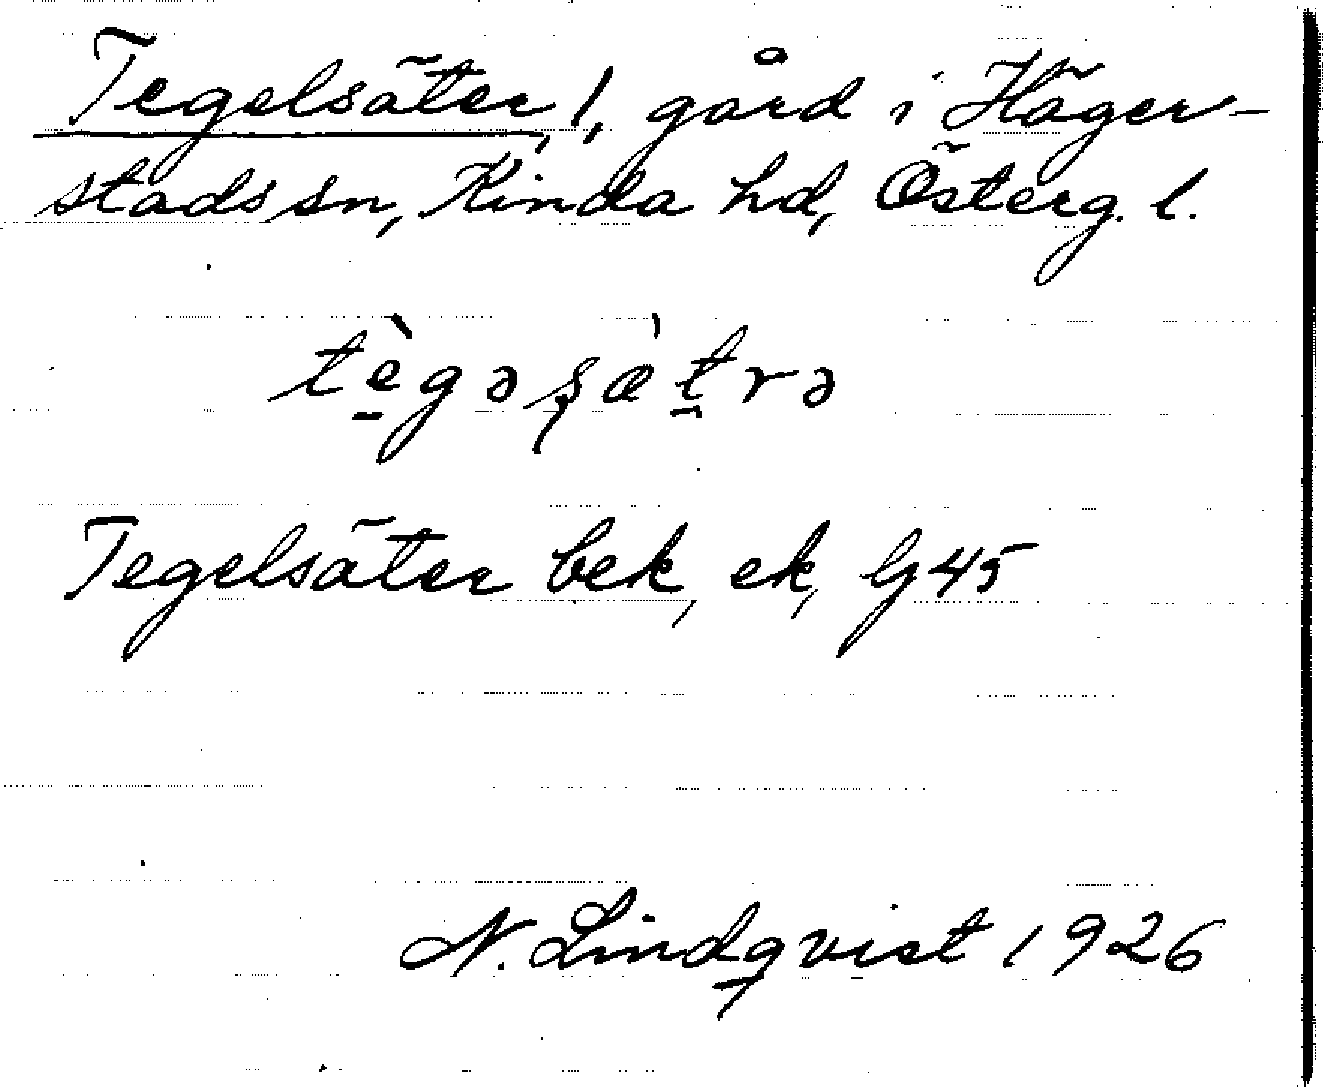 Tegelsäter, 1, gård i Häger-
stads sn, Kinda hd, Österg. l.
tè̠gəʂæ̀t̠rə
Tegelsäter bek, ek, Gj 45
N. Lindqvist 1926